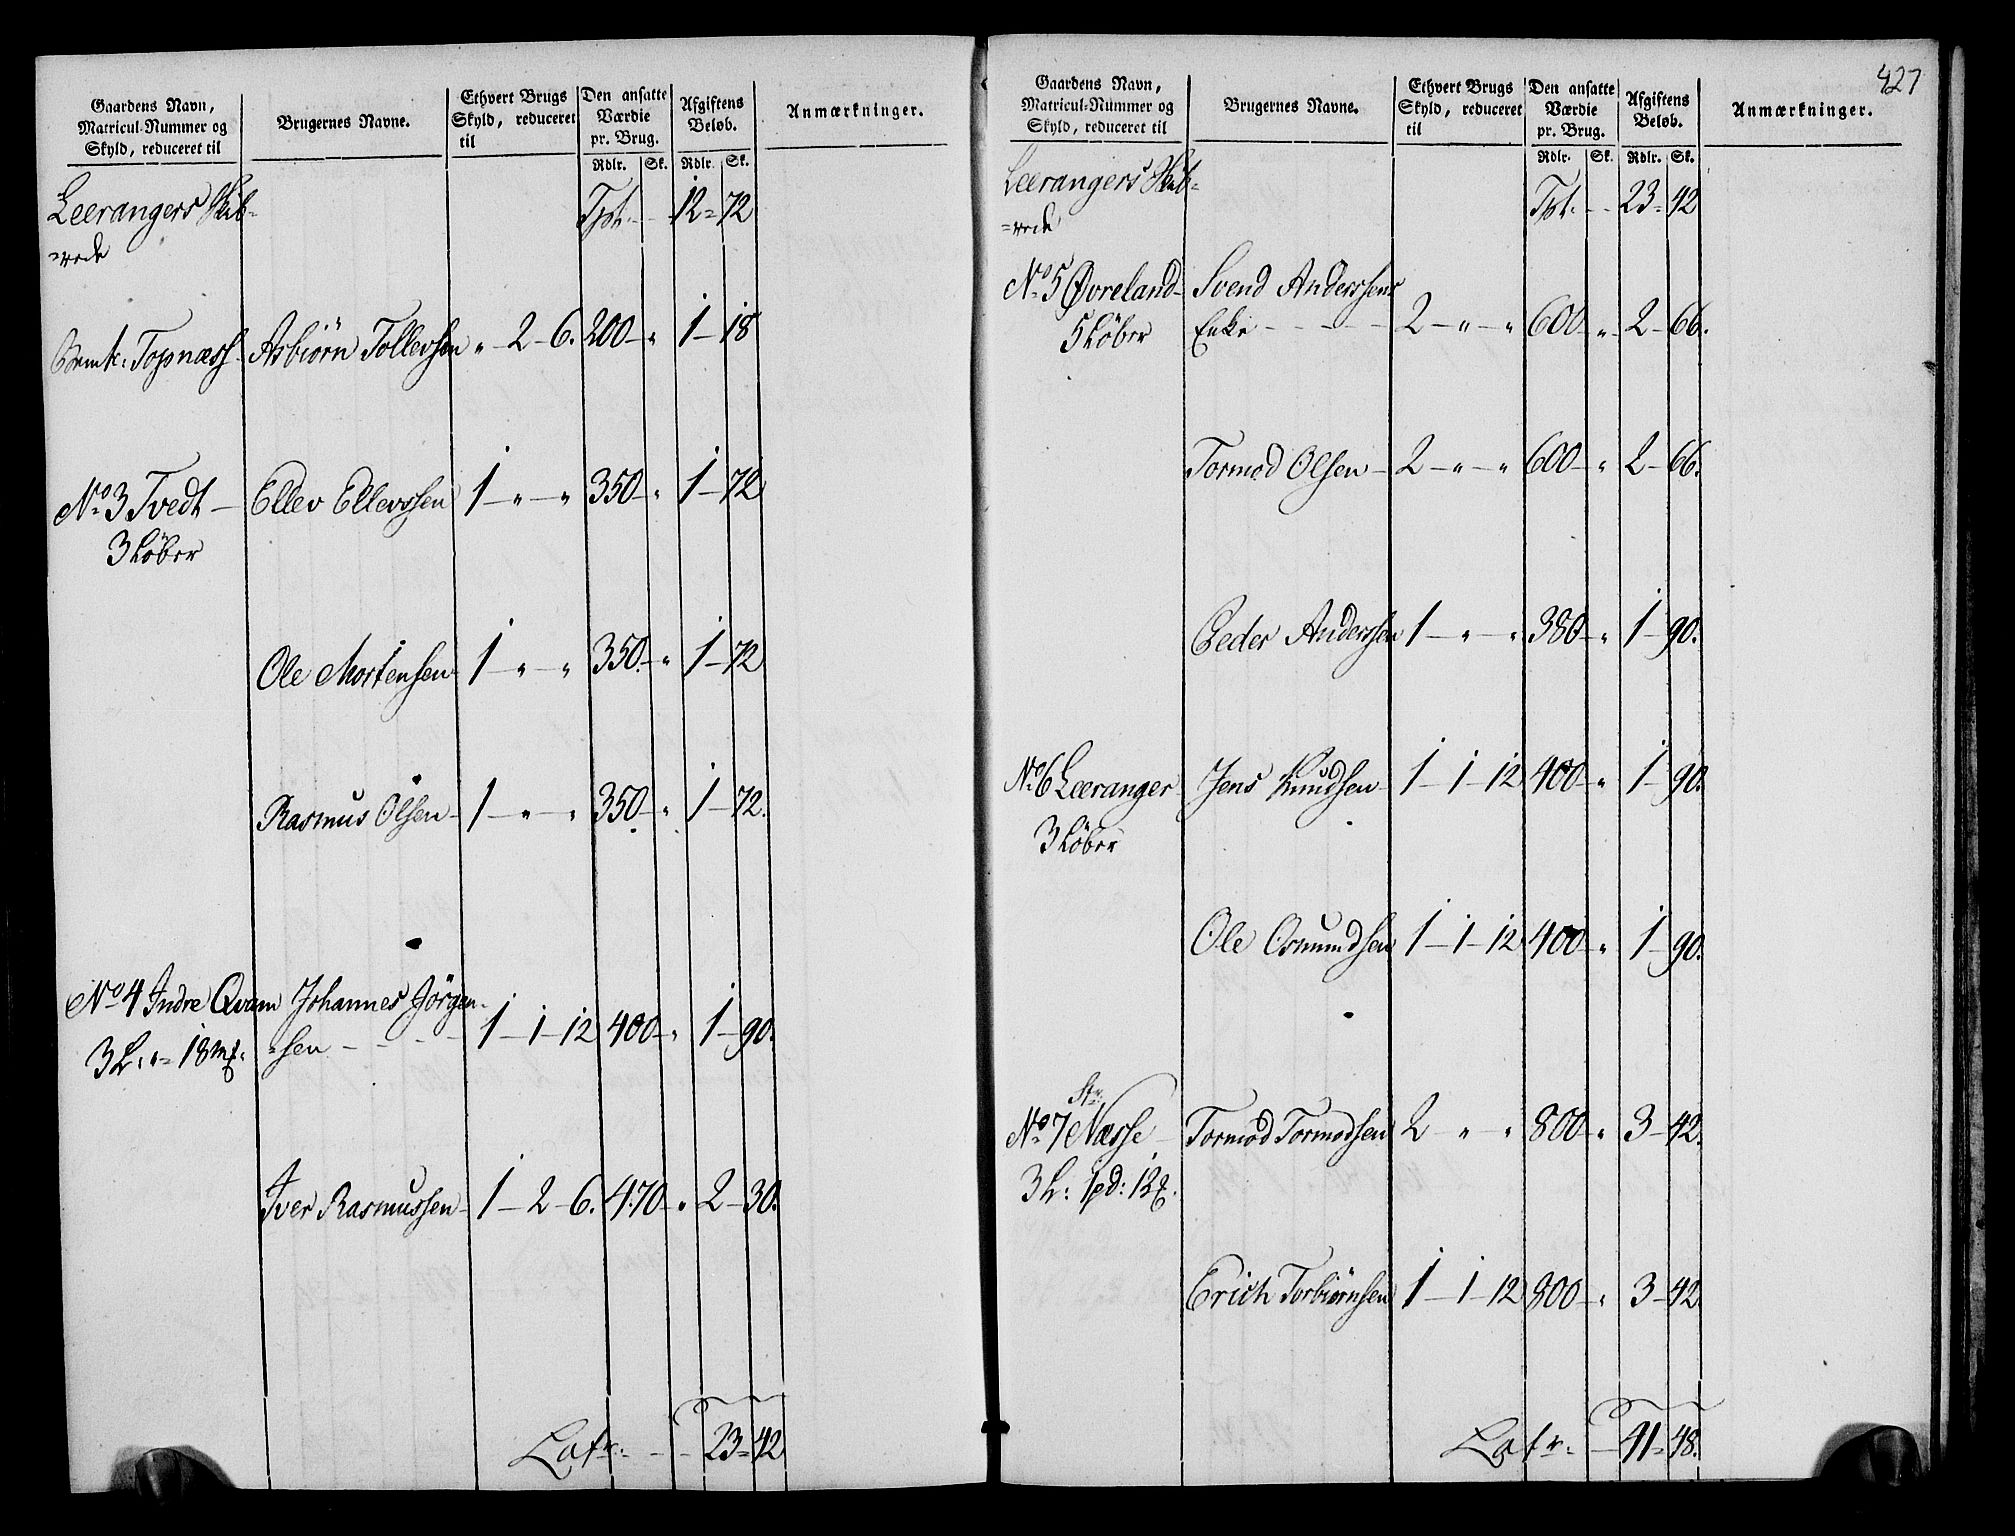 Gaardens Navn, Matricul-Nummer og Skyld, reduceret til | Brugernes Navne. | Ethvert Brugs Skyld, reduceret til | Den ansatte Værdie pr. Brug. Rdlr. Sk. | Afgiftens Beløb. Rdlr. Sk. | Anmærkninger.
Leerangers Skib- Tpt. 12 = 72
=rede
Topnæss Asbiørn Tollevsen „ - 2 - 6. 200 - „ 1 - 18
No 3 Tvedt - Ellev Ellevssen 1 - „ - „ 350 - „ 1 - 72
3 Löber
Ole Mortensen 1 - „ - „ 350 - „ 1 - 72
Rasmus Olsen - 1 - „ - „ 350 - „ 1 - 72.
No 4 Indre Qvam Johannes Jörgen-
3 L: „ = 18 mk. =sen - - - - 1 - 1 - 12 400 - „ 1 - 90.
Iver Rasmussen - 1 - 2 - 6. 470 - „ 2 - 30.
Latr: - - 23 = 42
427
Gaardens Navn, Matricul-Nummer og Skyld, reduceret til | Brugernes Navne. | Ethvert Brugs Skyld, reduceret til | Den ansatte Værdie pr. Brug. Rdlr. Sk. | Afgiftens Beløb. Rdlr. Sk. | Anmærkninger.
Leerangers Skib= Tpt. - - 23 = 42
=rede
No 5 Øvreland - Svend Anderssens
5 Löber Enke - - - - - 2 - „ - „ 600 - „ 2 - 66.
Tormod Olsen - 2 - „ - „ 600 - „ 2 - 66.
Peder Anderssen 1 - „ - „ 380 - „ 1 - 90.
No 6 Leeranger Jens Knudsen - 1 - 1 - 12 400 - „ 1 - 90.
3 Löber
Ole Osmundsen 1 - 1 - 12 400 - „ 1 - 90.
Str.
No 7 Næsse - Tormod Tormodsen 2 - „ - „ 800 - „ 3 - 42.
3 L: 1 pd:
Erich Torbiörnsen 1 - 1 - 12 800 - „ 3 - 42
Latr: - 41 = 48.